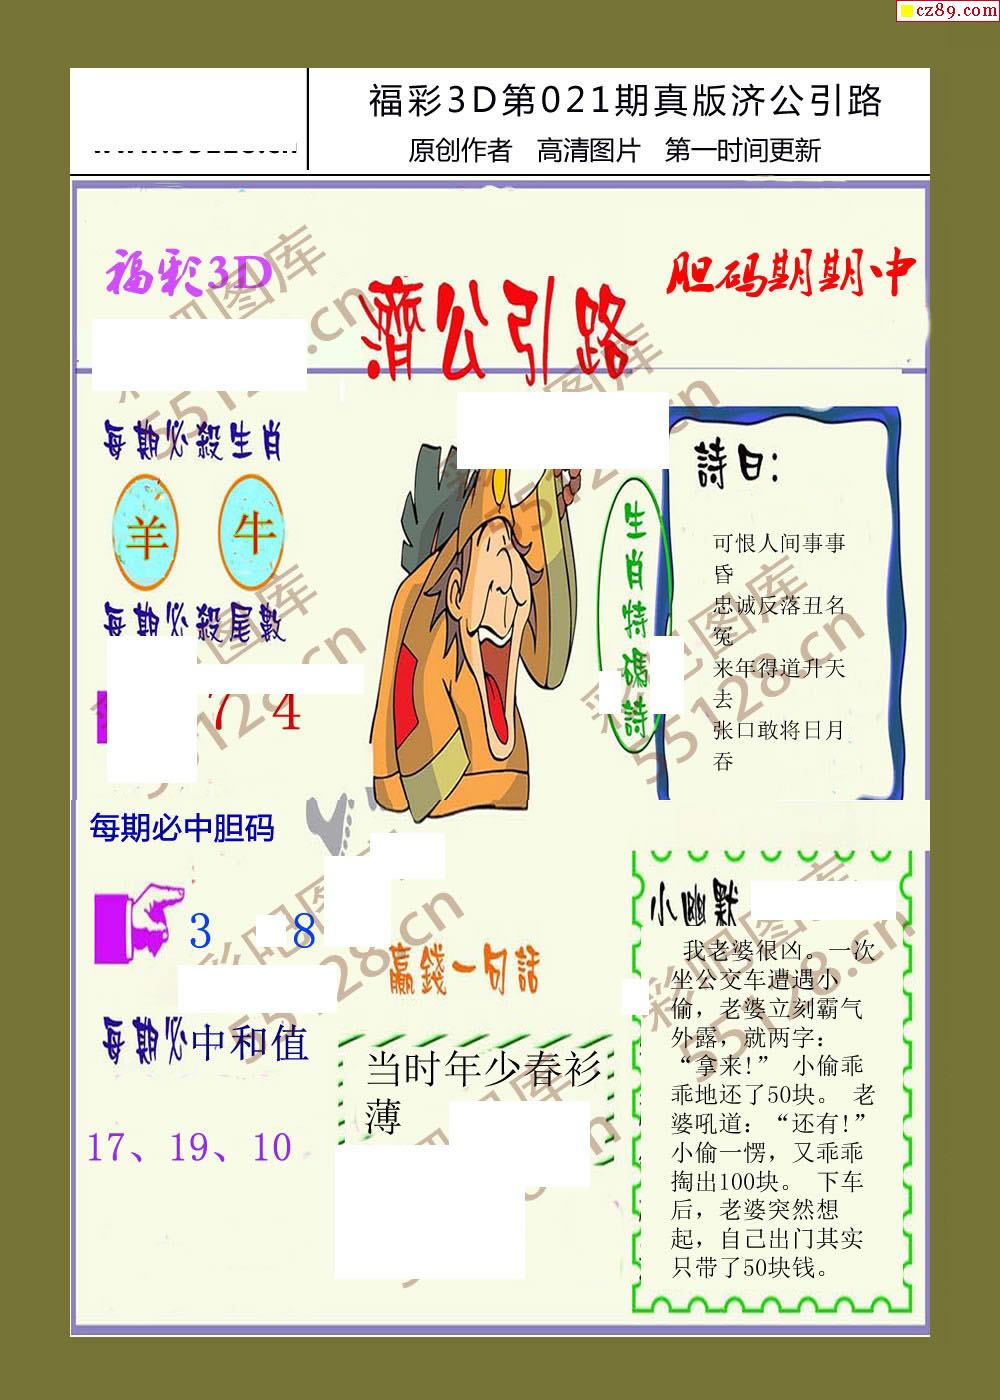 cz89.com
福彩3D第021期真版济公引路
原创作者 高清图片 第一时间更新
福彩3D
濟公引路
胆码期期中
每期必殺生肖
羊 牛
每期必殺尾數
7 4
生肖特碼詩
詩曰：
可恨人间事事
昏
忠诚反落丑名
冤
来年得道升天
去
张口敢将日月
吞
每期必中胆码
3 8
每期必中和值
17、19、10
赢錢一句話
当时年少春衫
薄
小幽默
我老婆很凶。一次
坐公交车遭遇小
偷，老婆立刻霸气
外露，就两字：
“拿来!” 小偷乖
乖地还了50块。 老
婆吼道：“还有!”
小偷一愣，又乖乖
掏出100块。 下车
后，老婆突然想
起，自己出门其实
只带了50块钱。
彩吧图库
55128.cn